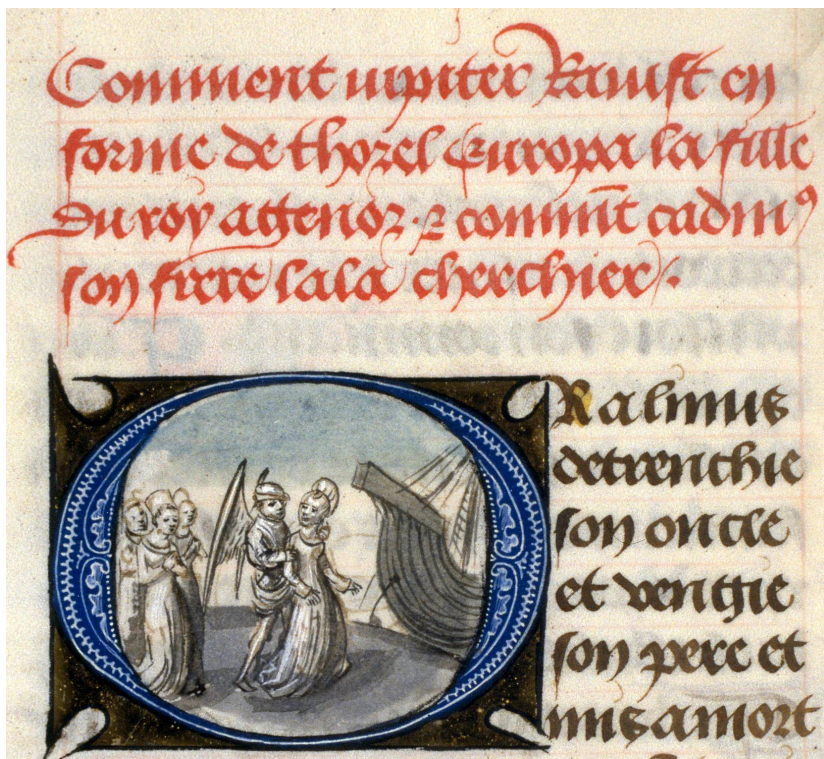 Comment iupiter Rauist en
forme de thorel Europa la fille
du roy aggenor · ⁊ comm̃t cadmꝰ
son frere lala cherchier ·
OR a linus
detrenchie
son oncle
et vengie
son pere et
mis a mort